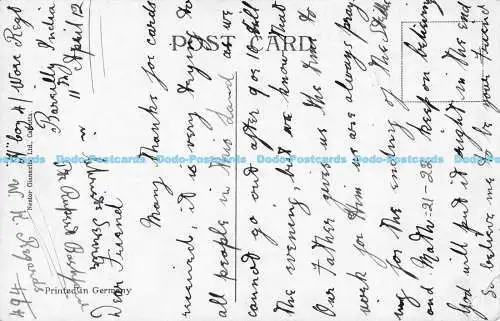 POST CARD
"B" Coy 1/Worc Regt
Bareilly India
11th April 12
Dear Friend
Many thanks for cards
received, it is very trying to
all people in this Land as we
cannot go out after 9 or 10 till
the evening, but we know that
Our Father gives us the time to
work for Him we are always pray
ing for the ending of the
and Math: 21-22 keep on believing
God will put it right in the end
So believe me to be your Friend
494
Nestor Gianaclis Ltd., Calcutta.
Printed in Germany
Dodo-Postcards Dodo-Postcards Dodo-Postcards Dodo-Postcards Dodo-Postcards Dodo-Postcards